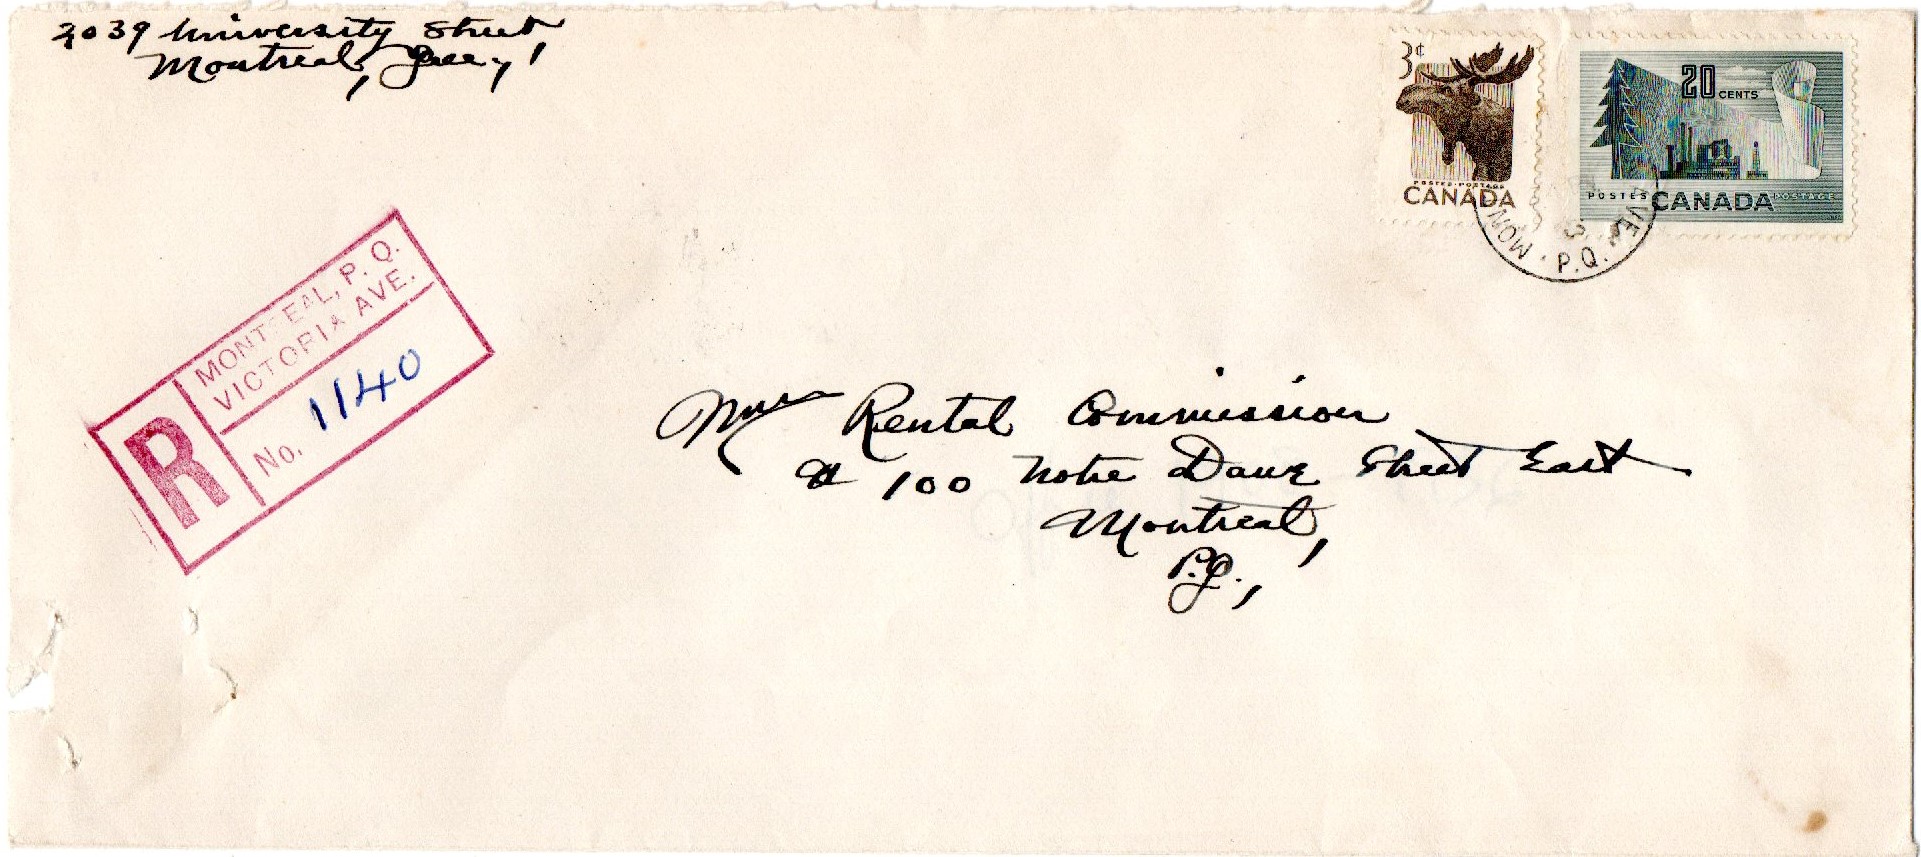 2039 University Street
Montreal, Que,
3¢
POSTES·POSTAGE
CANADA
20 CENTS
POSTES CANADA POSTAGE
MON
AVE.
P.Q.
MONTREAL, P. Q.
VICTORIA AVE.
R
No. 1140
Rental Commission
# 100 Notre Dame Street East
Montreal,
P.Q.,